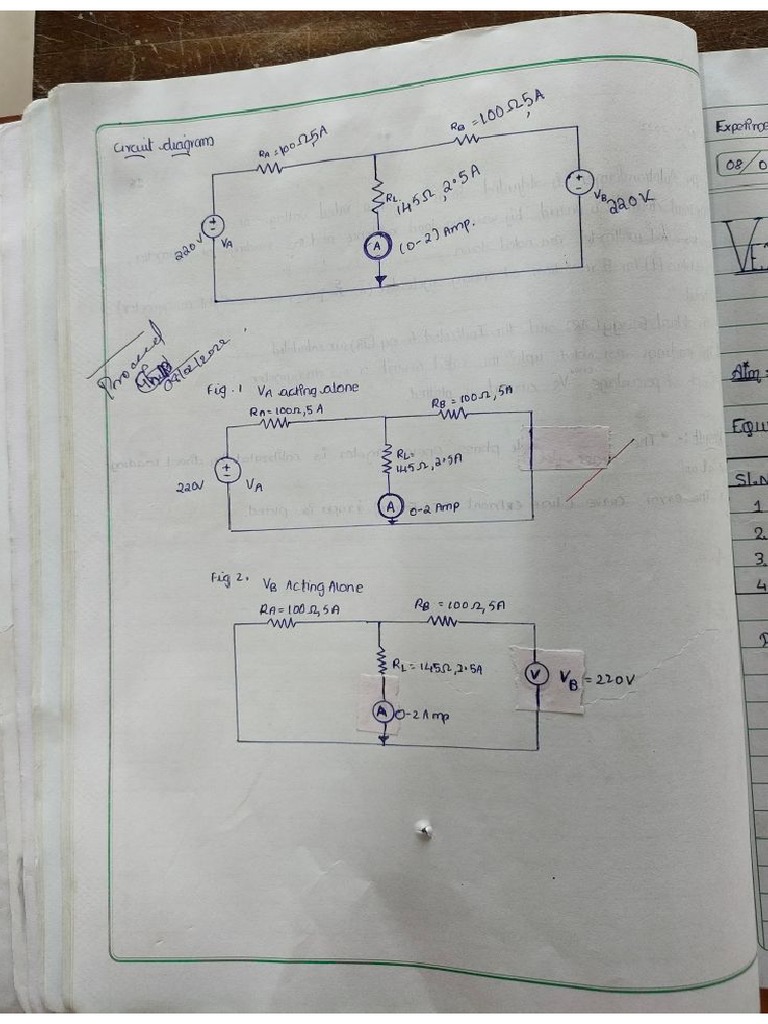 Circuit diagram
RA=100Ω,5A
RB=100Ω,5A
RL
145Ω, 2.5A
A
(0-2) Amp.
220V
VA
VB
220V
Proceed
08/02/2022
Fig.1 VA acting alone
RA=100Ω, 5A
RB=100Ω, 5A
RL=
145Ω, 2.5A
A
0-2 Amp
220V
VA
Fig 2. VB Acting Alone
RA=100Ω, 5A
RB=100Ω, 5A
RL=145Ω, 2.5A
A
0-2 Amp
V
VB=220V
08/0
Aim:
Equ
Sl.N
1
2.
3.
4